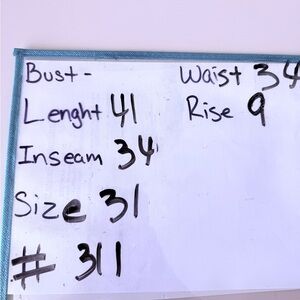 Bust -
Waist 34
Lenght 41
Rise 9
Inseam 34
Size 31
# 311